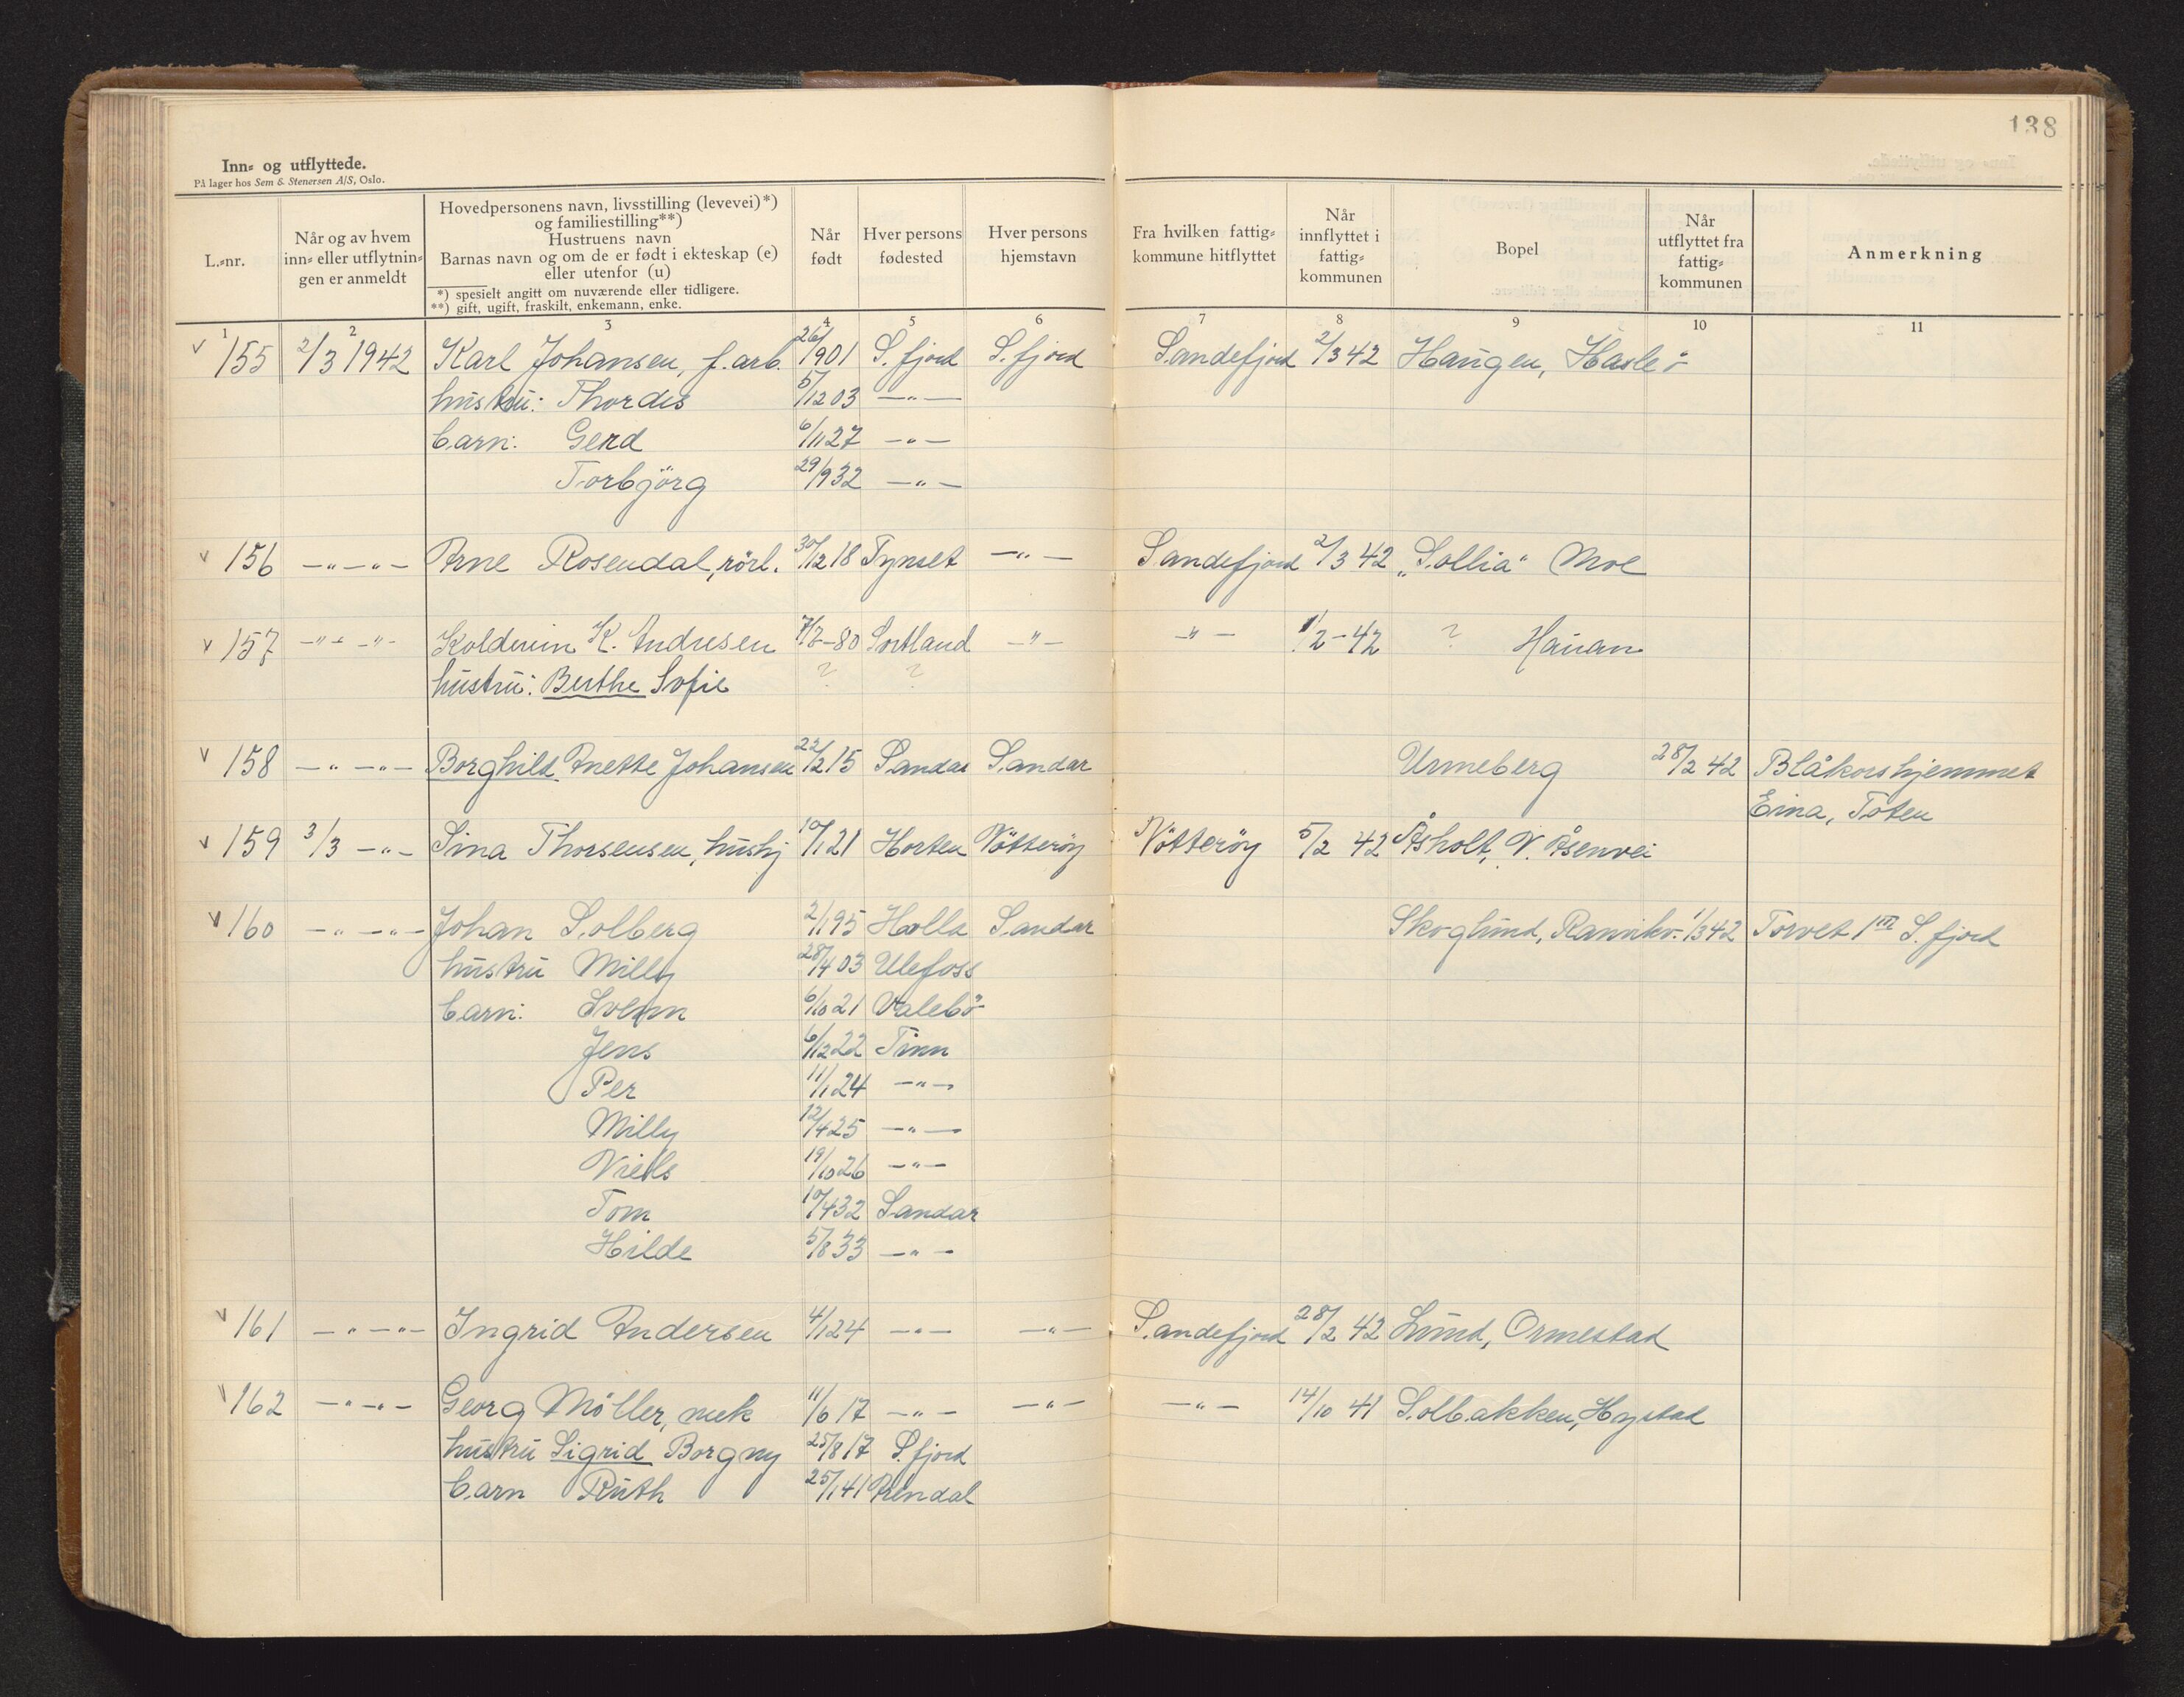 138
Inn- og utflyttede.
På lager hos Sem & Stenersen A/S, Oslo.
L.-nr.
Når og av hvem inn- eller utflytnin- gen er anmeldt
Hovedpersonens navn, livsstilling (levevei)*) og familiestilling**)
Hustruens navn
Barnas navn og om de er født i ekteskap (e) eller utenfor (u)
*) spesielt angitt om nuværende eller tidligere.
**) gift, ugift, fraskilt, enkemann, enke.
Når født
Hver persons fødested
Hver persons hjemstavn
Fra hvilken fattig- kommune hitflyttet
Når innflyttet i fattig- kommunen
Bopel
Når utflyttet fra fattig- kommunen
Anmerkning
1 2 3 4 5 6 7 8 9 10 11
v 155 2/3 1942 Karl Johansen, f.arb. 26/1 901 S.fjord S.fjord Sandefjord 2/3 42 Haugen, Haslek
hustru: Thordis 5/12 03 —"—
barn: Gerd 6/1 27 —"—
Torbjörg 29/9 32 —"—
v 156 —"—"— Arne Rosendal, rörl. 30/12 18 Tynset —"— Sandefjord 2/3 42 „Sollia" Moe
v 157 —"— —"— K. Andresen 7/2-80 Sortland —"— —"— 1/2-42 ? Hauan
hustru: Berthe Sofie ? ?
v 158 —"—"— Borghild Anette Johansen 22/2 15 Sandar Sandar Urmeberg 28/2 42 Blåkorshjemmet
Eina, Toten
v 159 3/3 —"— Sina Thorsensen, hushj 10/1 21 Horten Nötteröy Nötteröy 5/2 42 Åsholt, N. Åsenvei
v 160 —"—"— Johan Solberg 2/1 95 Holla Sandar Skoglund, Ranvikv. 1/3 42 Torvet 1 S.fjord
hustru Milly 28/4 03 Ulefoss
barn: Svenn 6/10 21 Valebö
Jens 6/12 22 Tinn
Per 11/1 24 —"—
Milly 12/4 25 —"—
Niels 19/10 26 —"—
Tom 10/4 32 Sandar
Hilde 5/8 33 —"—
v 161 —"—"— Ingrid Andersen 4/1 24 —"— —"— Sandefjord 28/2 42 Lund, Ormestad
v 162 —"—"— Georg Möller, mek 11/6 17 —"— —"— —"— 14/10 41 Solbakken, Hystad
hustru Sigrid Borgny 25/8 17 S.fjord
barn Ruth 25/1 41